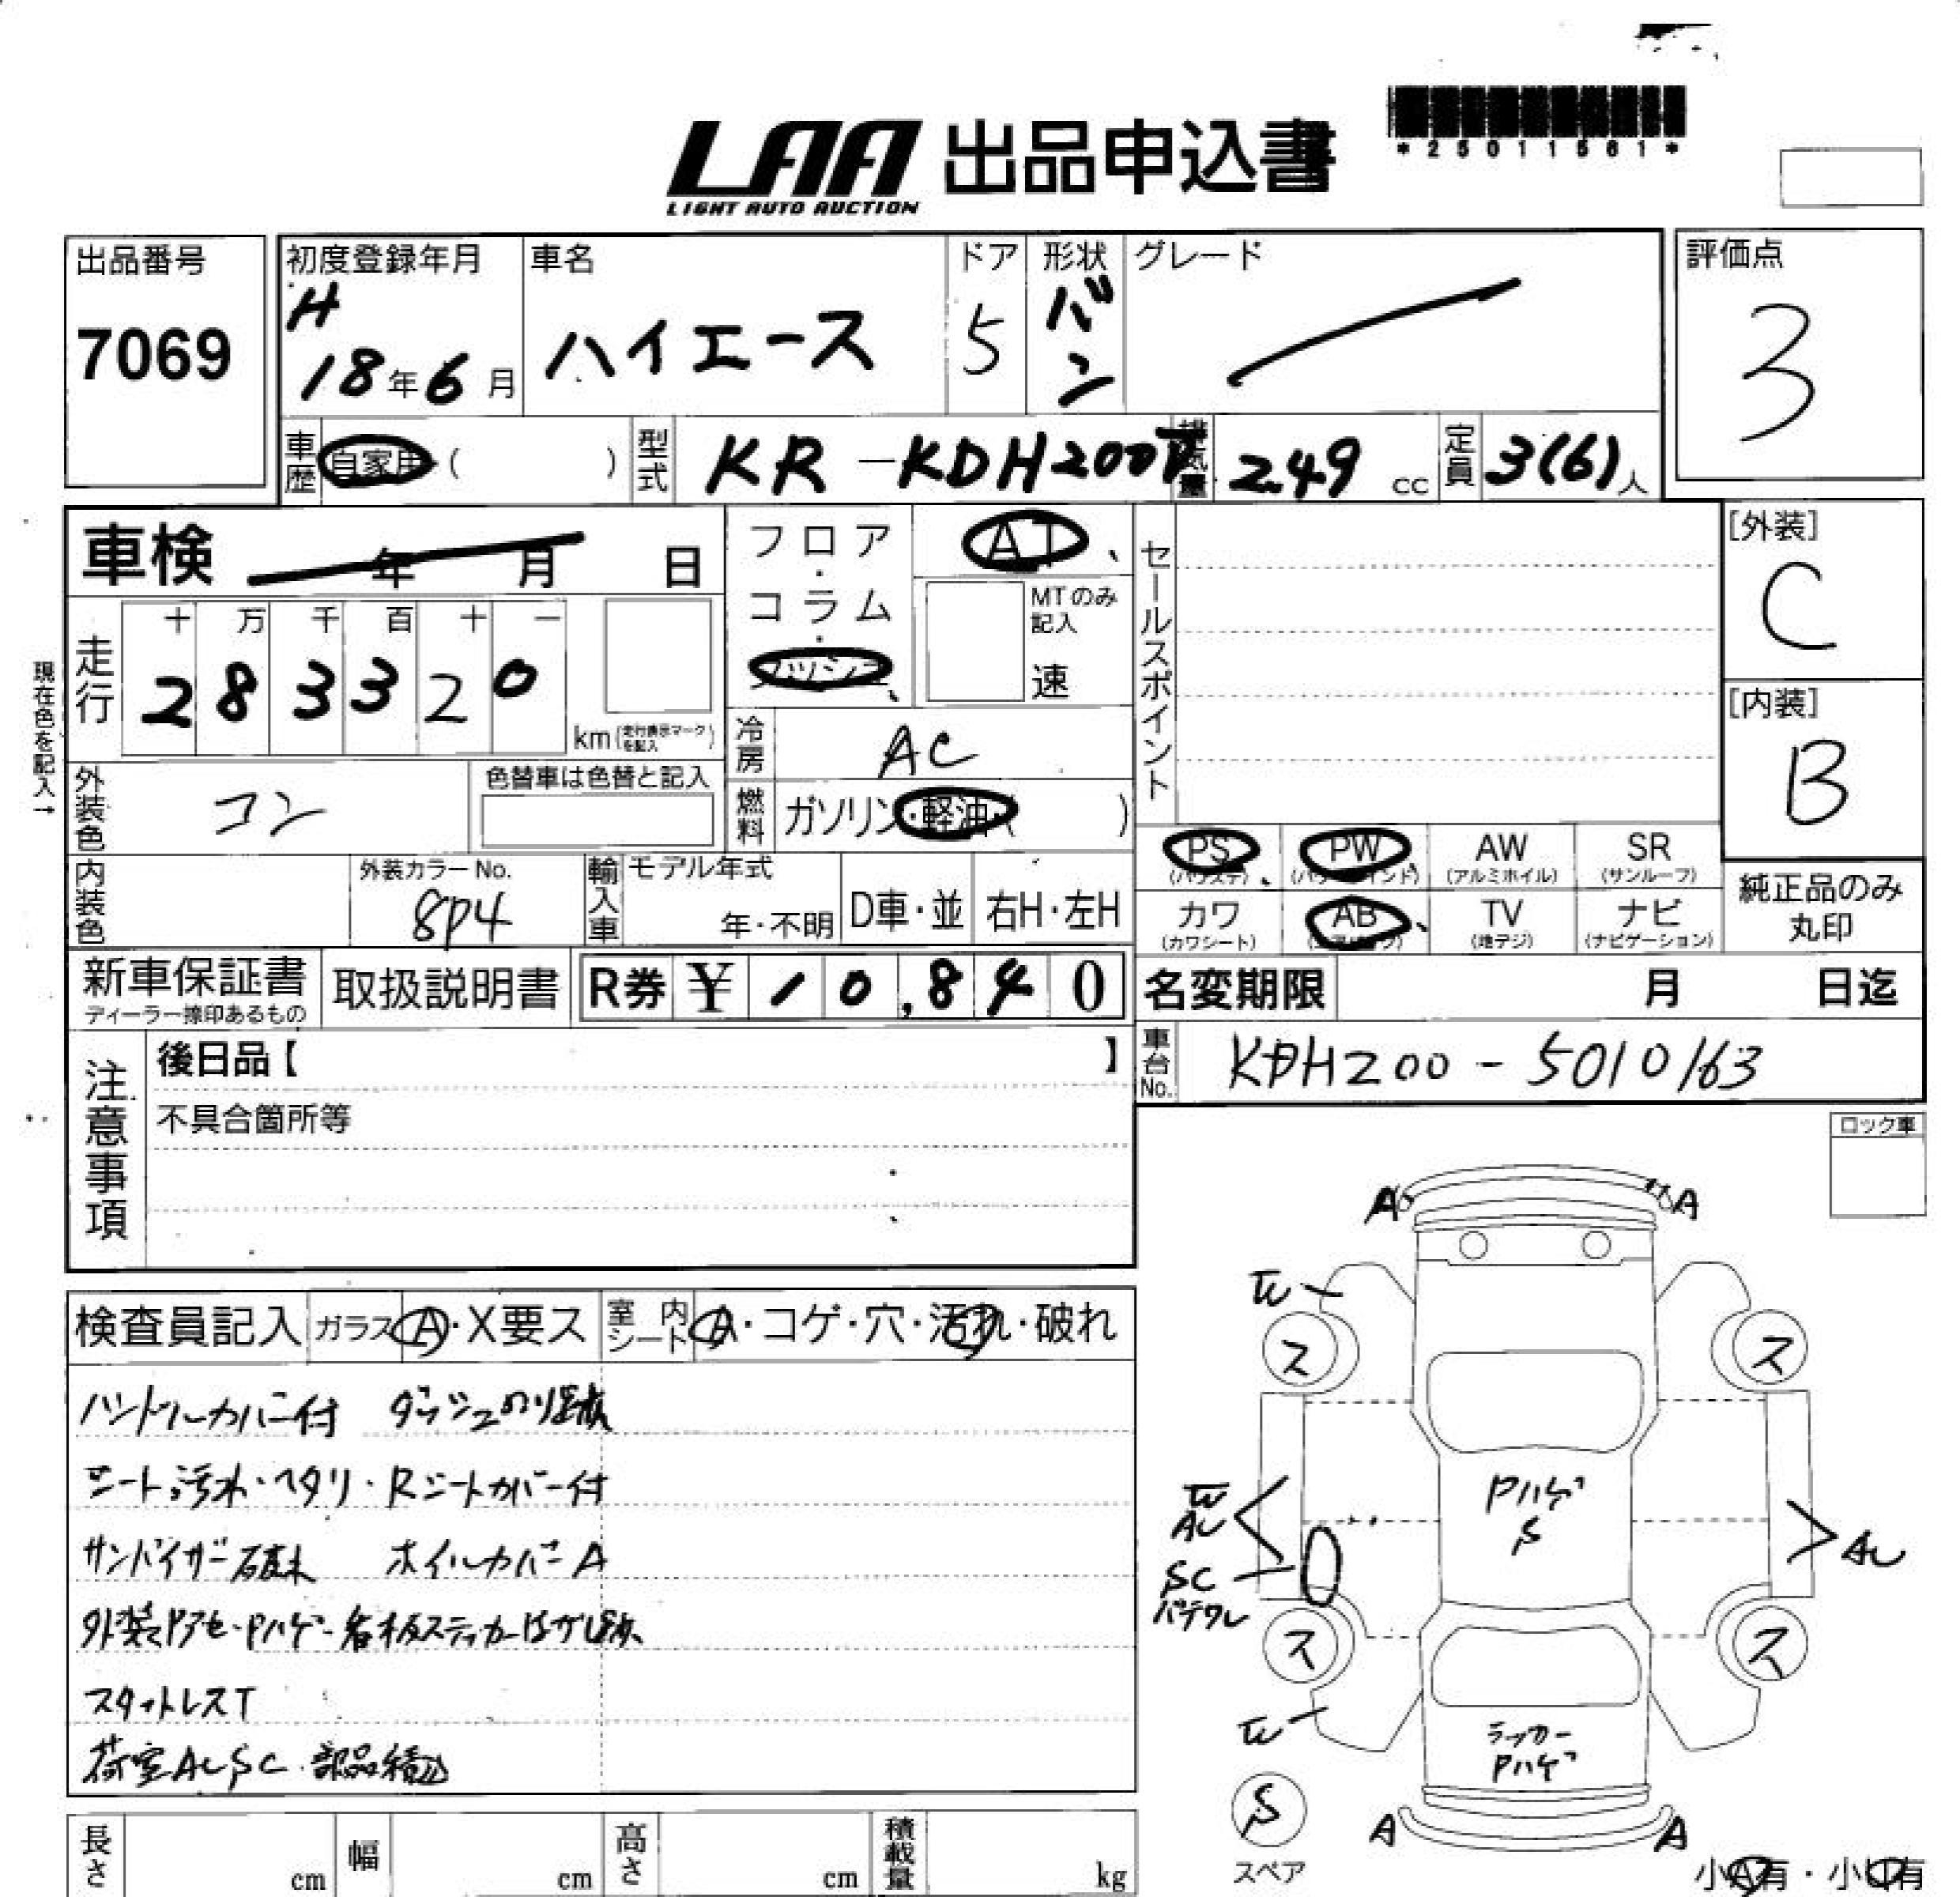 LAA 出品申込書
LIGHT AUTO AUCTION
*25011561*
出品番号
7069
初度登録年月
H
18年6月
車名
ハイエース
ドア
5
形状
バン
グレード
評価点
3
車歴
自家用・( )
型式
KR-KDH200V
排気量
2.49 cc
定員
3(6)人
車検
年 月 日
フロア・コラム・ダッシュ
AT
MTのみ記入
速
セールスポイント
[外装]
C
[内装]
B
現在色を記入→
走行
十 万 千 百 十 一
2 8 3 3 2 0
km(走行表示マークを記入)
冷房
AC
外装色
コン
色替車は色替と記入
燃料
ガソリン・軽油・( )
PS
(パワステ)
PW
(パワーウインド)
AW
(アルミホイル)
SR
(サンルーフ)
カワ
(カワシート)
AB
(エアバッグ)
TV
(地デジ)
ナビ
(ナビゲーション)
純正品のみ
丸印
内装色
外装カラーNo.
8P4
輸入車
モデル年式
年・不明
D車・並
右H・左H
新車保証書
ディーラー捺印あるもの
取扱説明書
R券 ¥ 10,840
名変期限
月 日迄
車台No.
KDH200-5010163
注意事項
後日品【 】
不具合箇所等
ロック車
検査員記入
ガラス A・X要ス
室内シート A・コゲ・穴・汚れ・破れ
ハンドルカバー付 ダッシュのり跡
シート汚れ・ヘタリ・Rシートカバー付
サンバイザー破れ ホイルカバーA
外装Pアセ・Pハゲ・看板ステッカーはがし跡
スタットレスT
荷室AUSC・部品積込
A
A
W
ス
ス
Pハゲ
S
W
AU
SC
パテワレ
AU
ス
ス
W
ラッカー
Pハゲ
S
スペア
A
A
小A有・小U有
長さ
cm
幅
cm
高さ
cm
積載量
kg